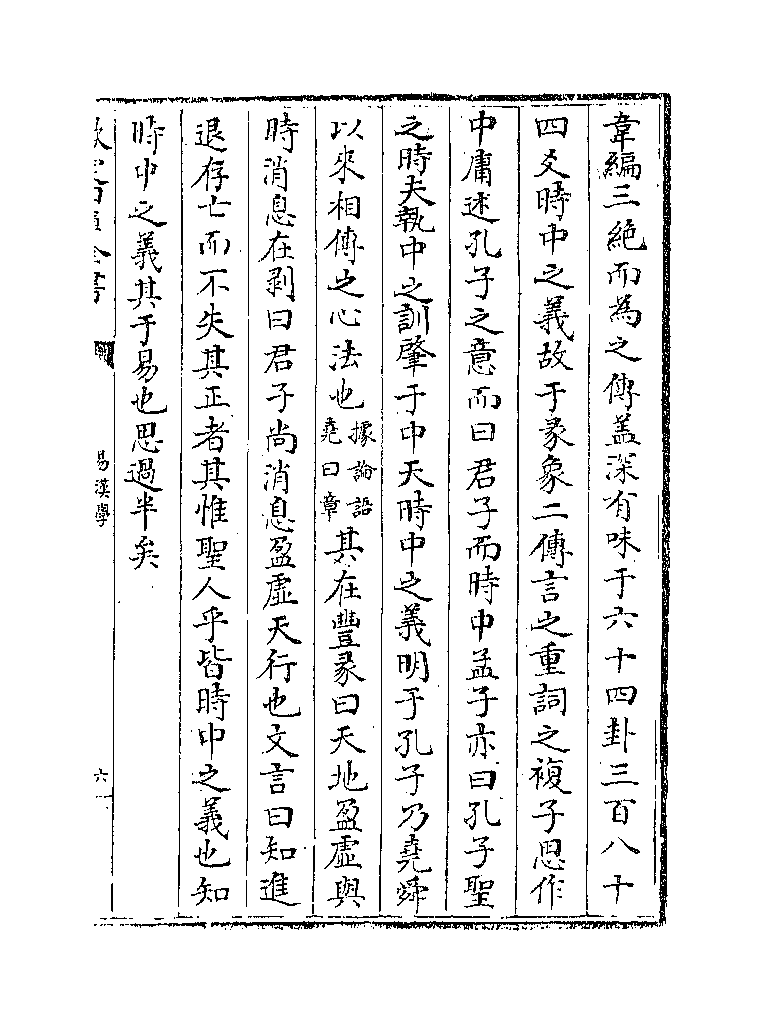 韋編三絶而為之傳蓋深有味于六十四卦三百八十
四爻時中之義故于彖象二傳言之重詞之複子思作
中庸述孔子之意而曰君子而時中孟子亦曰孔子聖
之時夫執中之訓肇于中天時中之義明于孔子乃堯舜
以來相傳之心法也據論語堯曰章其在豐彖曰天地盈虛與
時消息在剥曰君子尚消息盈虛天行也文言曰知進
退存亡而不失其正者其惟聖人乎皆時中之義也知
時中之義其于易也思過半矣
易漢學
六